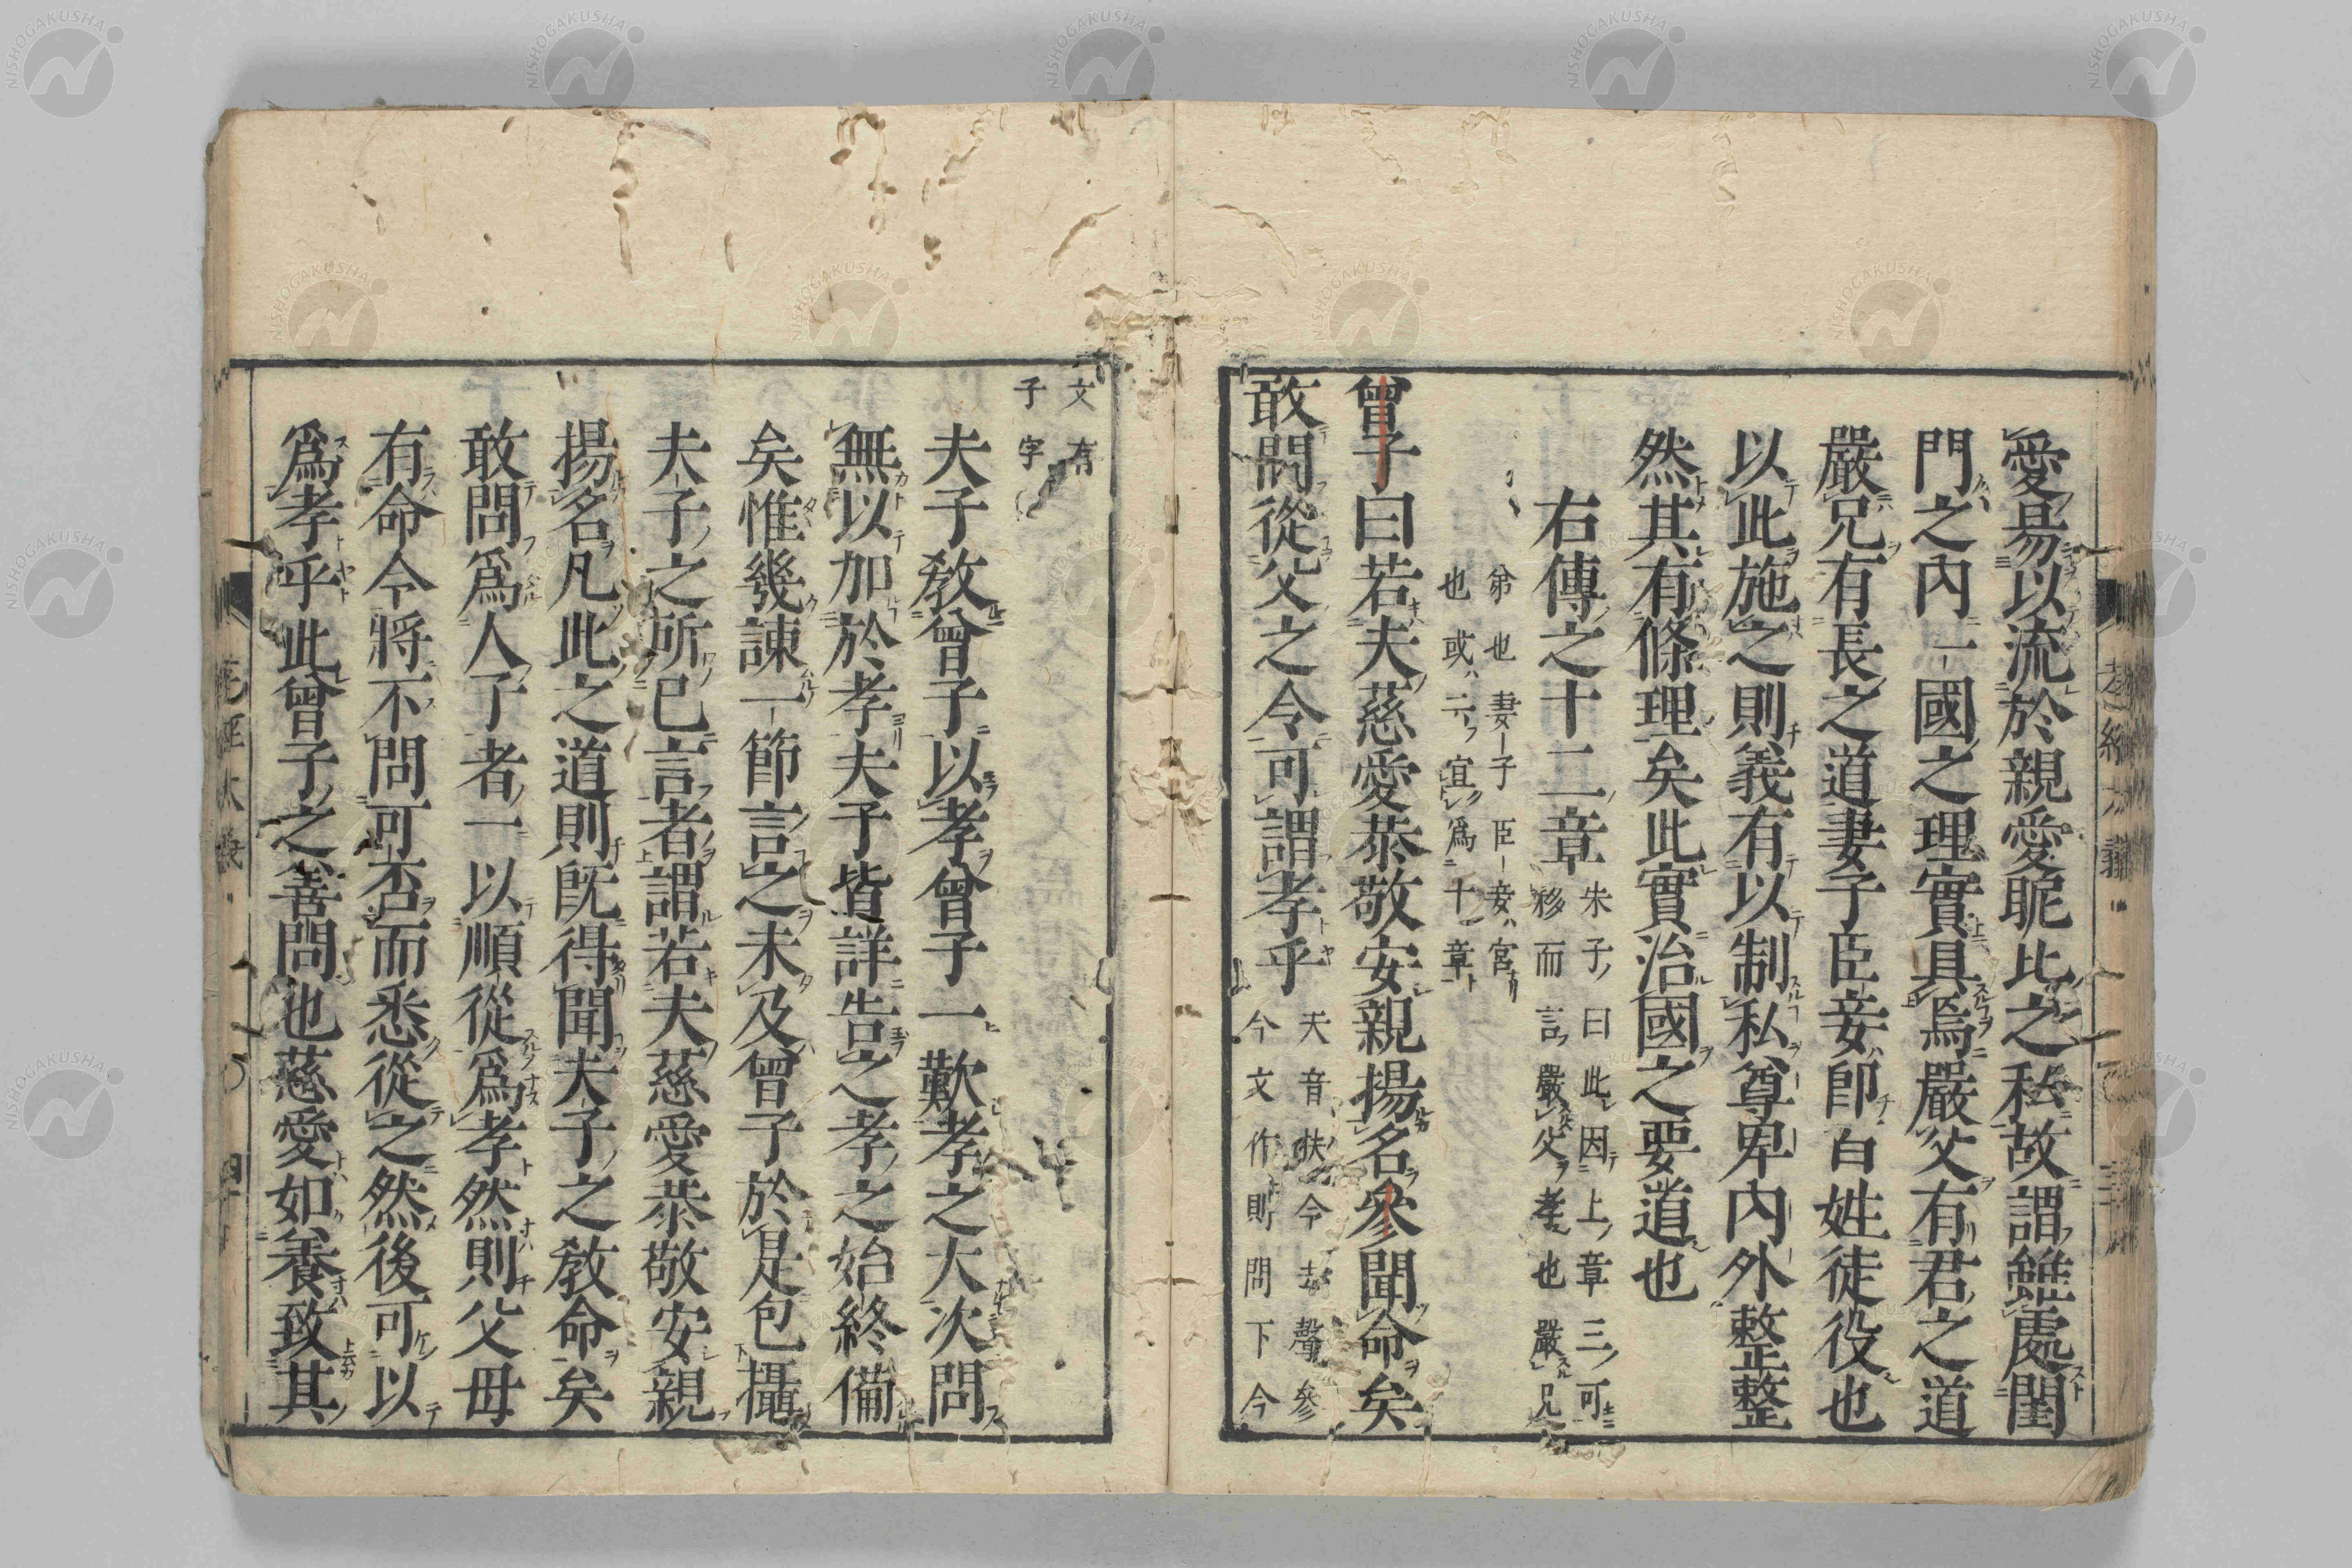 愛易以流於親愛昵比之私故謂雖處閨
門之內一國之理實具焉嚴父有君之道
嚴兄有長之道妻子臣妾卽百姓徒役也
以此施之則義有以制私尊卑內外整整
然其有條理矣此實治國之要道也
右傳之十二章
朱子曰此因上章三可
移而言嚴父孝也嚴兄
弟也妻子臣妾官
也或云宜爲十章
曾子曰若夫慈愛恭敬安親揚名參聞命矣
敢問從父之令可謂孝乎
夫音扶今去聲參
今文作則問下今
文有
子字
夫子敎曾子以孝曾子一歎孝之大次問
無以加於孝夫子皆詳告之孝之始終備
矣惟幾諫一節言之未及曾子於是包攝
夫子之所已言者謂若夫慈愛恭敬安親
揚名凡此之道則旣得聞夫子之敎命矣
敢問爲人子者一以順從爲孝然則父母
有命令將不問可否而悉從之然後可以
爲孝乎此曾子之善問也慈愛如養致其
NISHOGAKUSHA